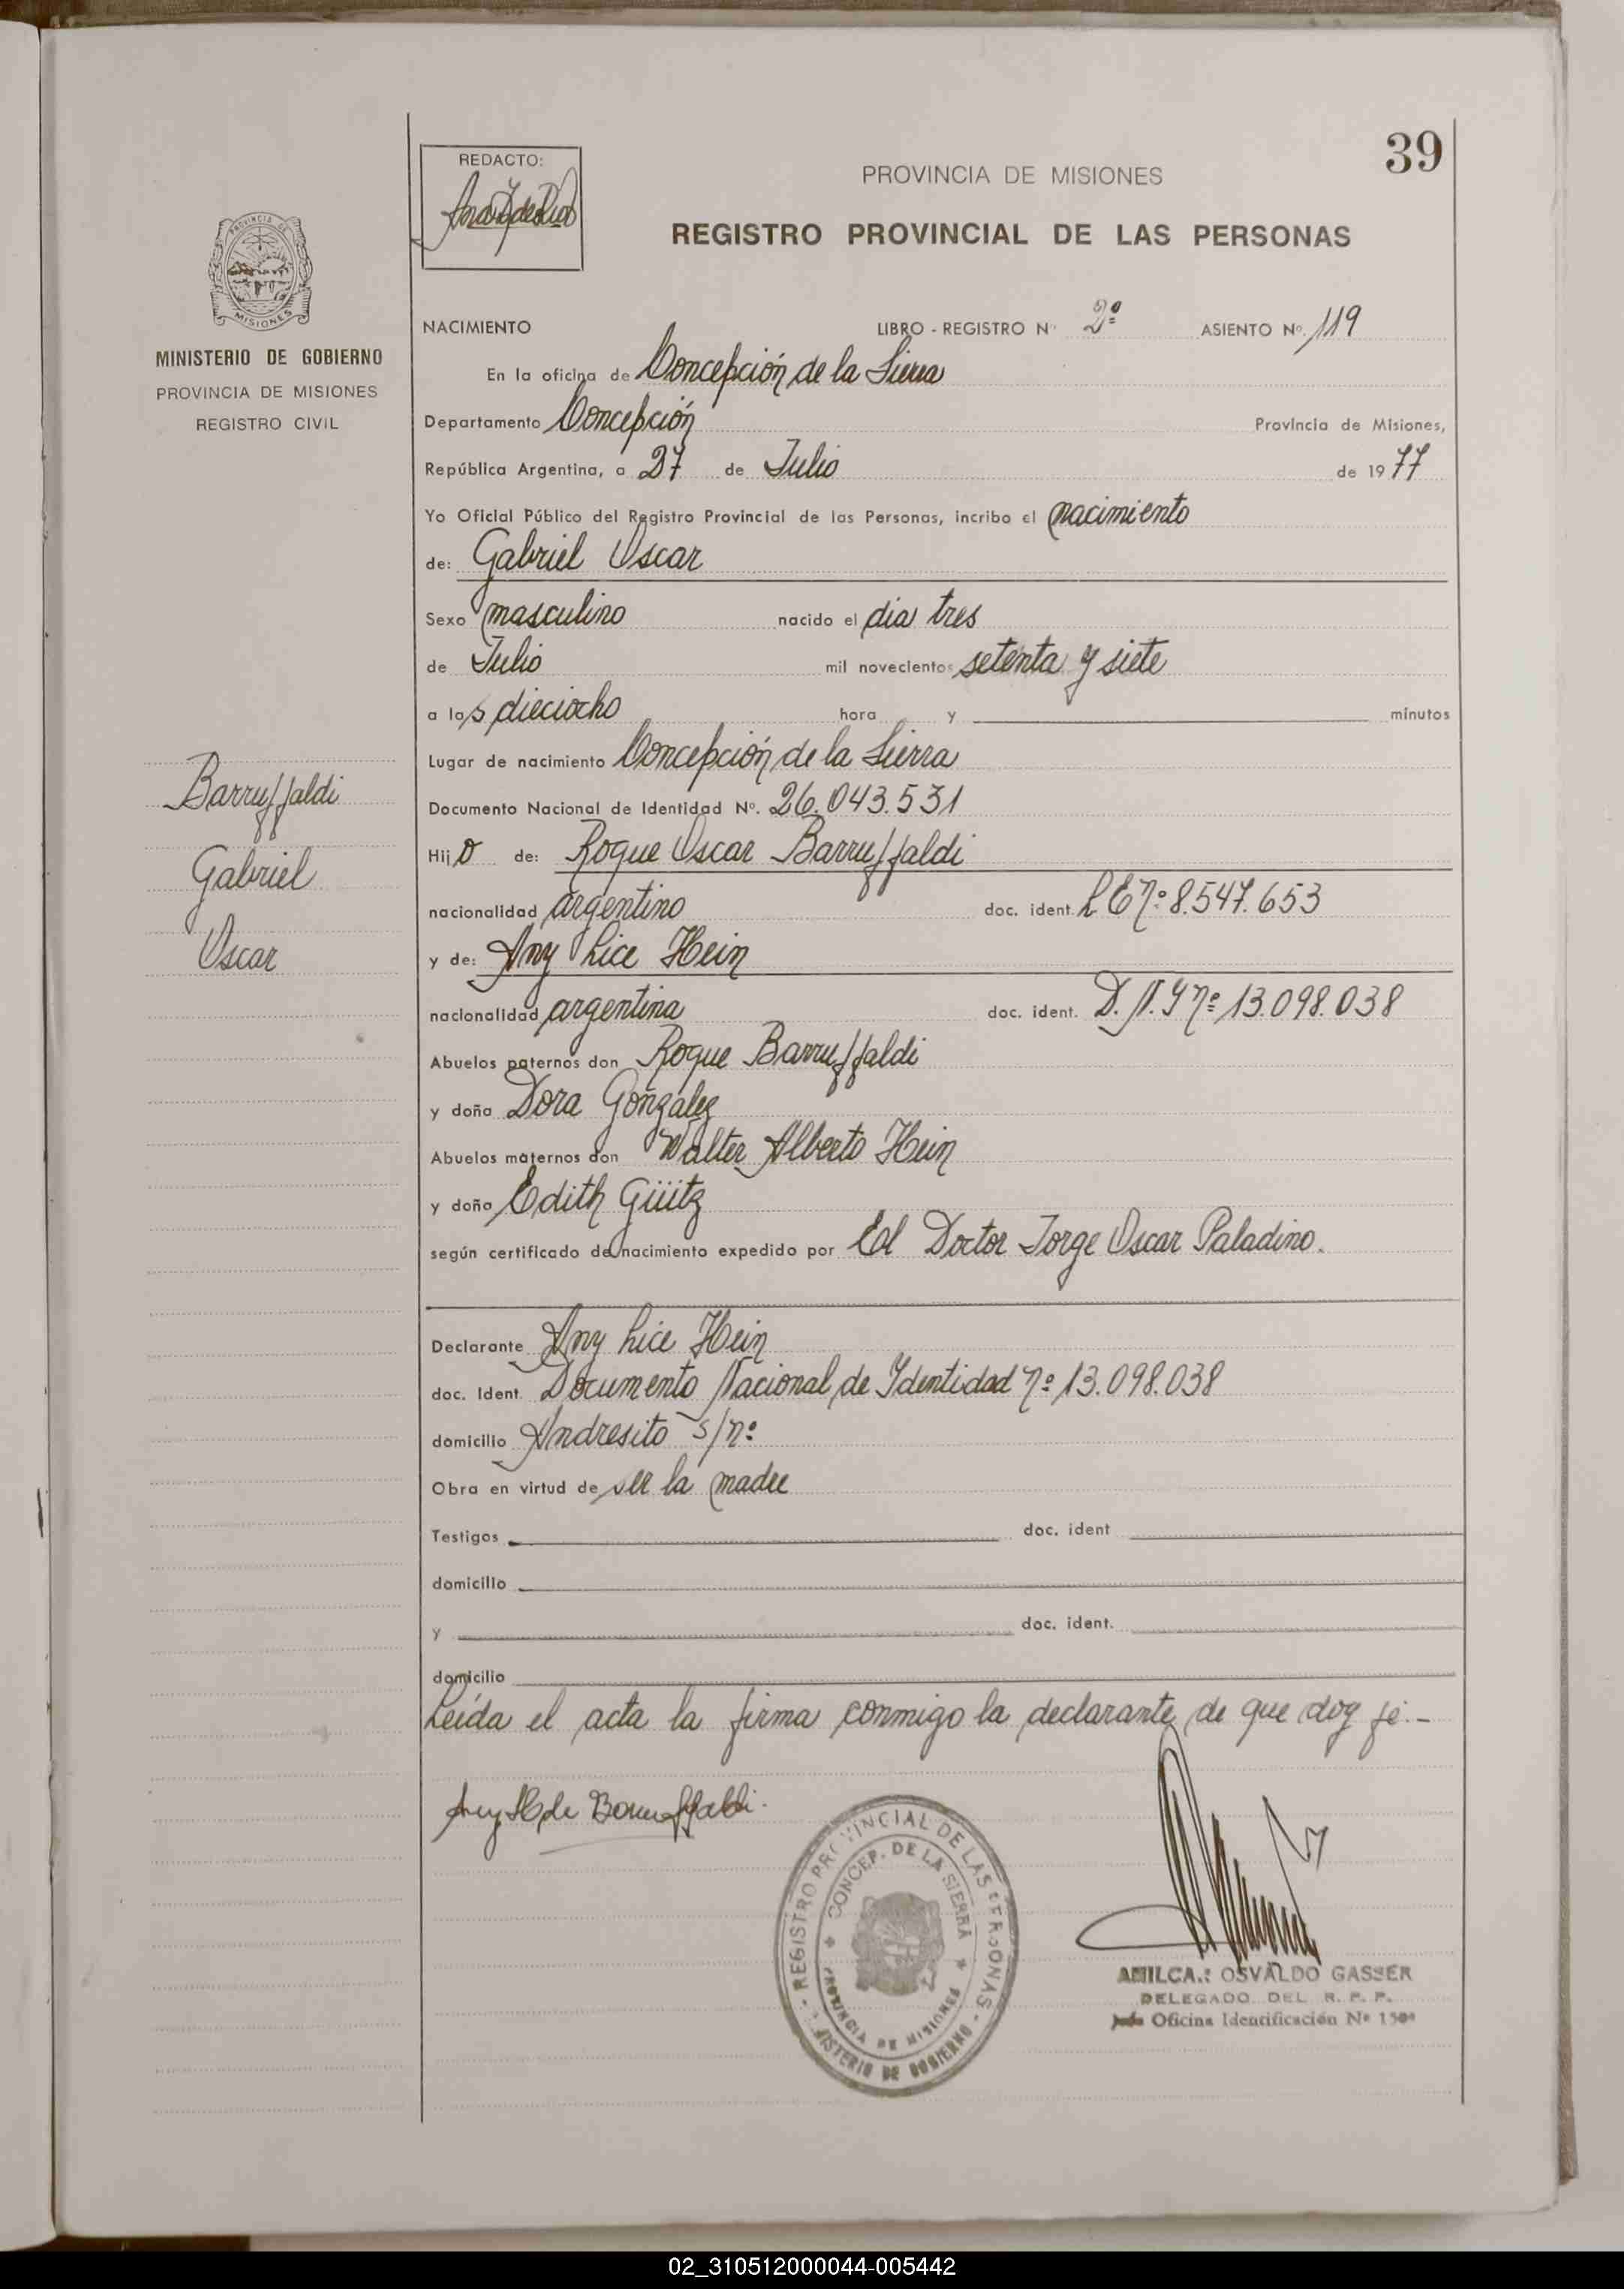 39
REDACTO:
PROVINCIA DE MISIONES
REGISTRO PROVINCIAL DE LAS PERSONAS
PROVINCIA DE
MISIONES
MINISTERIO DE GOBIERNO
PROVINCIA DE MISIONES
REGISTRO CIVIL
NACIMIENTO LIBRO - REGISTRO Nº 2º ASIENTO Nº 119
En la oficina de Concepción de la Sierra
Departamento Concepción Provincia de Misiones,
República Argentina, a 27 de Julio de 1977
Yo Oficial Público del Registro Provincial de las Personas, incribo el nacimiento
de: Gabriel Oscar
Sexo masculino nacido el dia tres
de Julio mil novecientos setenta y siete
a las dieciocho hora y minutos
Lugar de nacimiento Concepción de la Sierra
Documento Nacional de Identidad Nº. 26.043.531
Hijo de: Roque Oscar Barruffaldi
nacionalidad argentino doc. ident. L E nº 8.547.653
y de: Any Lice Hein
nacionalidad argentina doc. ident. D.N.I nº 13.098.038
Abuelos paternos don Roque Barruffaldi
y doña Dora González
Abuelos maternos don Walter Alberto Hein
y doña Edith Güitz
según certificado de nacimiento expedido por El Doctor Jorge Oscar Paladino.
Barruffaldi
Gabriel
Oscar
Declarante Any Lice Hein
doc. Ident. Documento Nacional de Identidad nº 13.098.038
domicilio Andresito s/nº
Obra en virtud de ser la madre
Testigos doc. ident
domicilio
y doc. ident.
domicilio
Leída el acta la firma conmigo la declarante, de que doy fé.-
Any H. de Barruffaldi.
REGISTRO PROVINCIAL DE LAS PERSONAS
CONCEP. DE LA SIERRA
PROVINCIA DE MISIONES
MINISTERIO DE GOBIERNO
AMILCAR OSVALDO GASSER
DELEGADO DEL R. P. P.
Oficina Identificación Nº
02_310512000044-005442